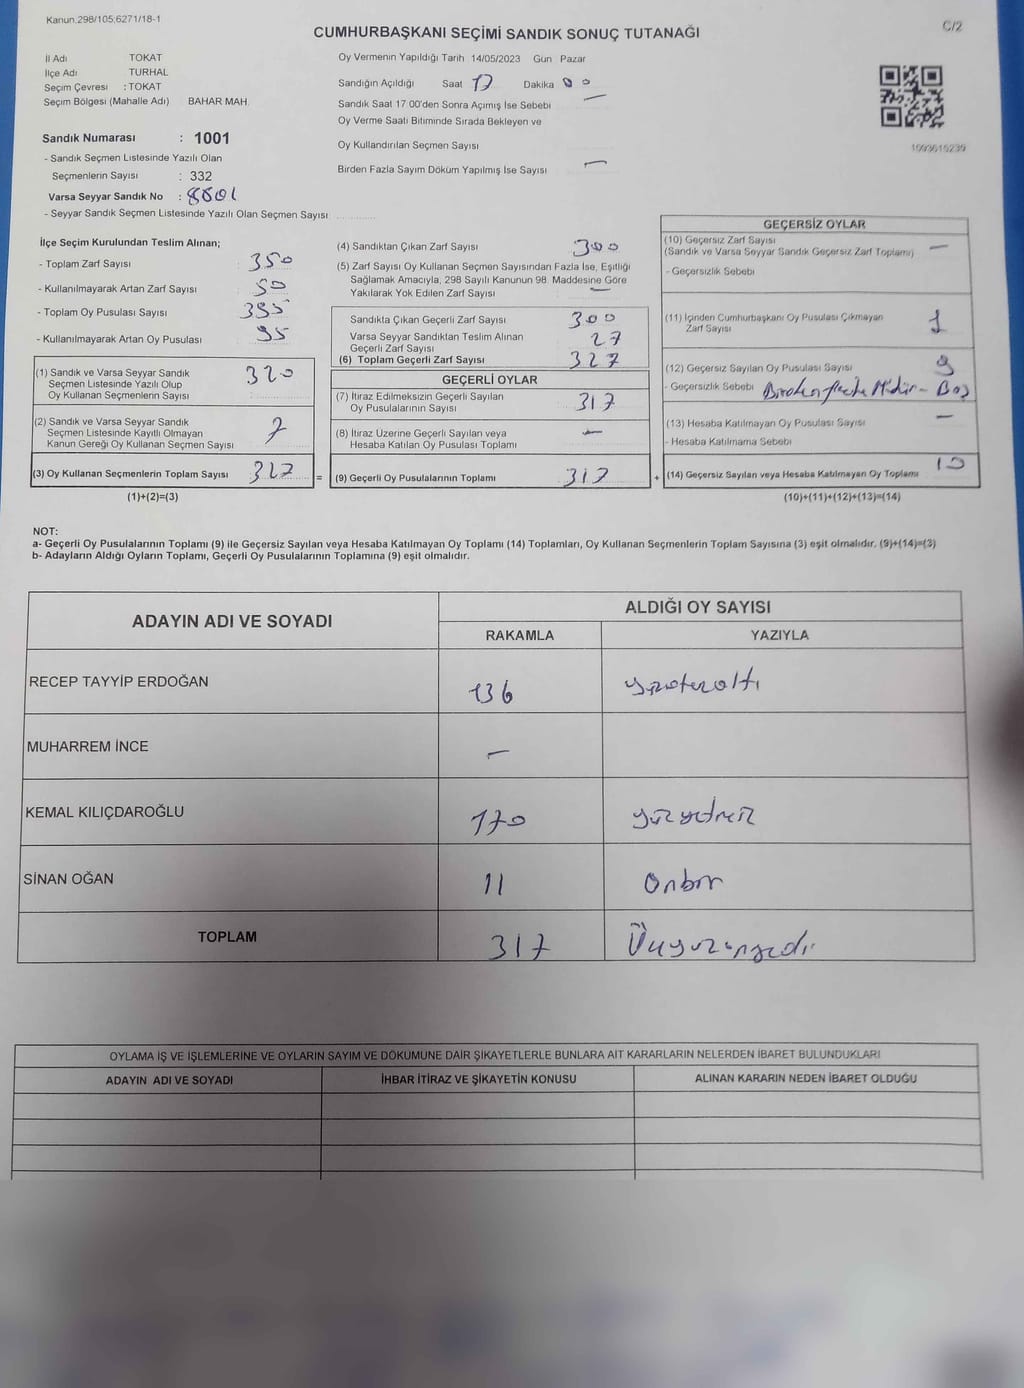 Kanun.298/105;6271/18-1
C/2
CUMHURBAŞKANI SEÇİMİ SANDIK SONUÇ TUTANAĞI
İl Adı TOKAT
İlçe Adı TURHAL
Seçim Çevresi : TOKAT
Seçim Bölgesi (Mahalle Adı) BAHAR MAH.
Sandık Numarası : 1001
- Sandık Seçmen Listesinde Yazılı Olan
Seçmenlerin Sayısı : 332
Varsa Seyyar Sandık No : 8801
- Seyyar Sandık Seçmen Listesinde Yazılı Olan Seçmen Sayısı
Oy Vermenin Yapıldığı Tarih 14/05/2023 Gün Pazar
Sandığın Açıldığı Saat 17 Dakika 00
Sandık Saat 17 00'den Sonra Açımış İse Sebebi —
Oy Verme Saati Bitiminde Sırada Bekleyen ve
Oy Kullandırılan Seçmen Sayısı
Birden Fazla Sayım Döküm Yapılmış İse Sayısı —
1093615239
İlçe Seçim Kurulundan Teslim Alınan;
- Toplam Zarf Sayısı 350
- Kullanılmayarak Artan Zarf Sayısı 50
- Toplam Oy Pusulası Sayısı 395
- Kullanılmayarak Artan Oy Pusulası 95
(1) Sandık ve Varsa Seyyar Sandık
Seçmen Listesinde Yazılı Olup
Oy Kullanan Seçmenlerin Sayısı 320
(2) Sandık ve Varsa Seyyar Sandık
Seçmen Listesinde Kayıtlı Olmayan
Kanun Gereği Oy Kullanan Seçmen Sayısı 7
(3) Oy Kullanan Seçmenlerin Toplam Sayısı 327 =
(1)+(2)=(3)
(4) Sandıktan Çıkan Zarf Sayısı 300
(5) Zarf Sayısı Oy Kullanan Seçmen Sayısından Fazla İse, Eşitliği
Sağlamak Amacıyla, 298 Sayılı Kanunun 98. Maddesine Göre
Yakılarak Yok Edilen Zarf Sayısı —
Sandıkta Çıkan Geçerli Zarf Sayısı 300
Varsa Seyyar Sandıktan Teslim Alınan
Geçerli Zarf Sayısı 27
(6) Toplam Geçerli Zarf Sayısı 327
GEÇERLİ OYLAR
(7) İtiraz Edilmeksizin Geçerli Sayılan
Oy Pusulalarının Sayısı 317
(8) İtiraz Üzerine Geçerli Sayılan veya
Hesaba Katılan Oy Pusulası Toplamı —
(9) Geçerli Oy Pusulalarının Toplamı 317 +
GEÇERSİZ OYLAR
(10) Geçersiz Zarf Sayısı
(Sandık ve Varsa Seyyar Sandık Geçersiz Zarf Toplamı) —
- Geçersizlik Sebebi
(11) İçinden Cumhurbaşkanı Oy Pusulası Çıkmayan
Zarf Sayısı 1
(12) Geçersiz Sayılan Oy Pusulası Sayısı 9
- Geçersizlik Sebebi Birden fazla Mühür - Boş
(13) Hesaba Katılmayan Oy Pusulası Sayısı —
- Hesaba Katılmama Sebebi
(14) Geçersiz Sayılan veya Hesaba Katılmayan Oy Toplamı 10
(10)+(11)+(12)+(13)=(14)
NOT:
a- Geçerli Oy Pusulalarının Toplamı (9) ile Geçersiz Sayılan veya Hesaba Katılmayan Oy Toplamı (14) Toplamları, Oy Kullanan Seçmenlerin Toplam Sayısına (3) eşit olmalıdır. (9)+(14)=(3)
b- Adayların Aldığı Oyların Toplamı, Geçerli Oy Pusulalarının Toplamına (9) eşit olmalıdır.
ADAYIN ADI VE SOYADI
ALDIĞI OY SAYISI
RAKAMLA YAZIYLA
RECEP TAYYİP ERDOĞAN 136 yüzotuzaltı
MUHARREM İNCE —
KEMAL KILIÇDAROĞLU 170 yüzyetmiş
SİNAN OĞAN 11 Onbir
TOPLAM 317 Üçyüzonyedi
OYLAMA İŞ VE İŞLEMLERİNE VE OYLARIN SAYIM VE DÖKÜMÜNE DAİR ŞİKAYETLERLE BUNLARA AİT KARARLARIN NELERDEN İBARET BULUNDUKLARI
ADAYIN ADI VE SOYADI İHBAR İTİRAZ VE ŞİKAYETİN KONUSU ALINAN KARARIN NEDEN İBARET OLDUĞU